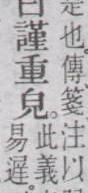 也。傳箋注以
謹重皃。
此義
易遲。